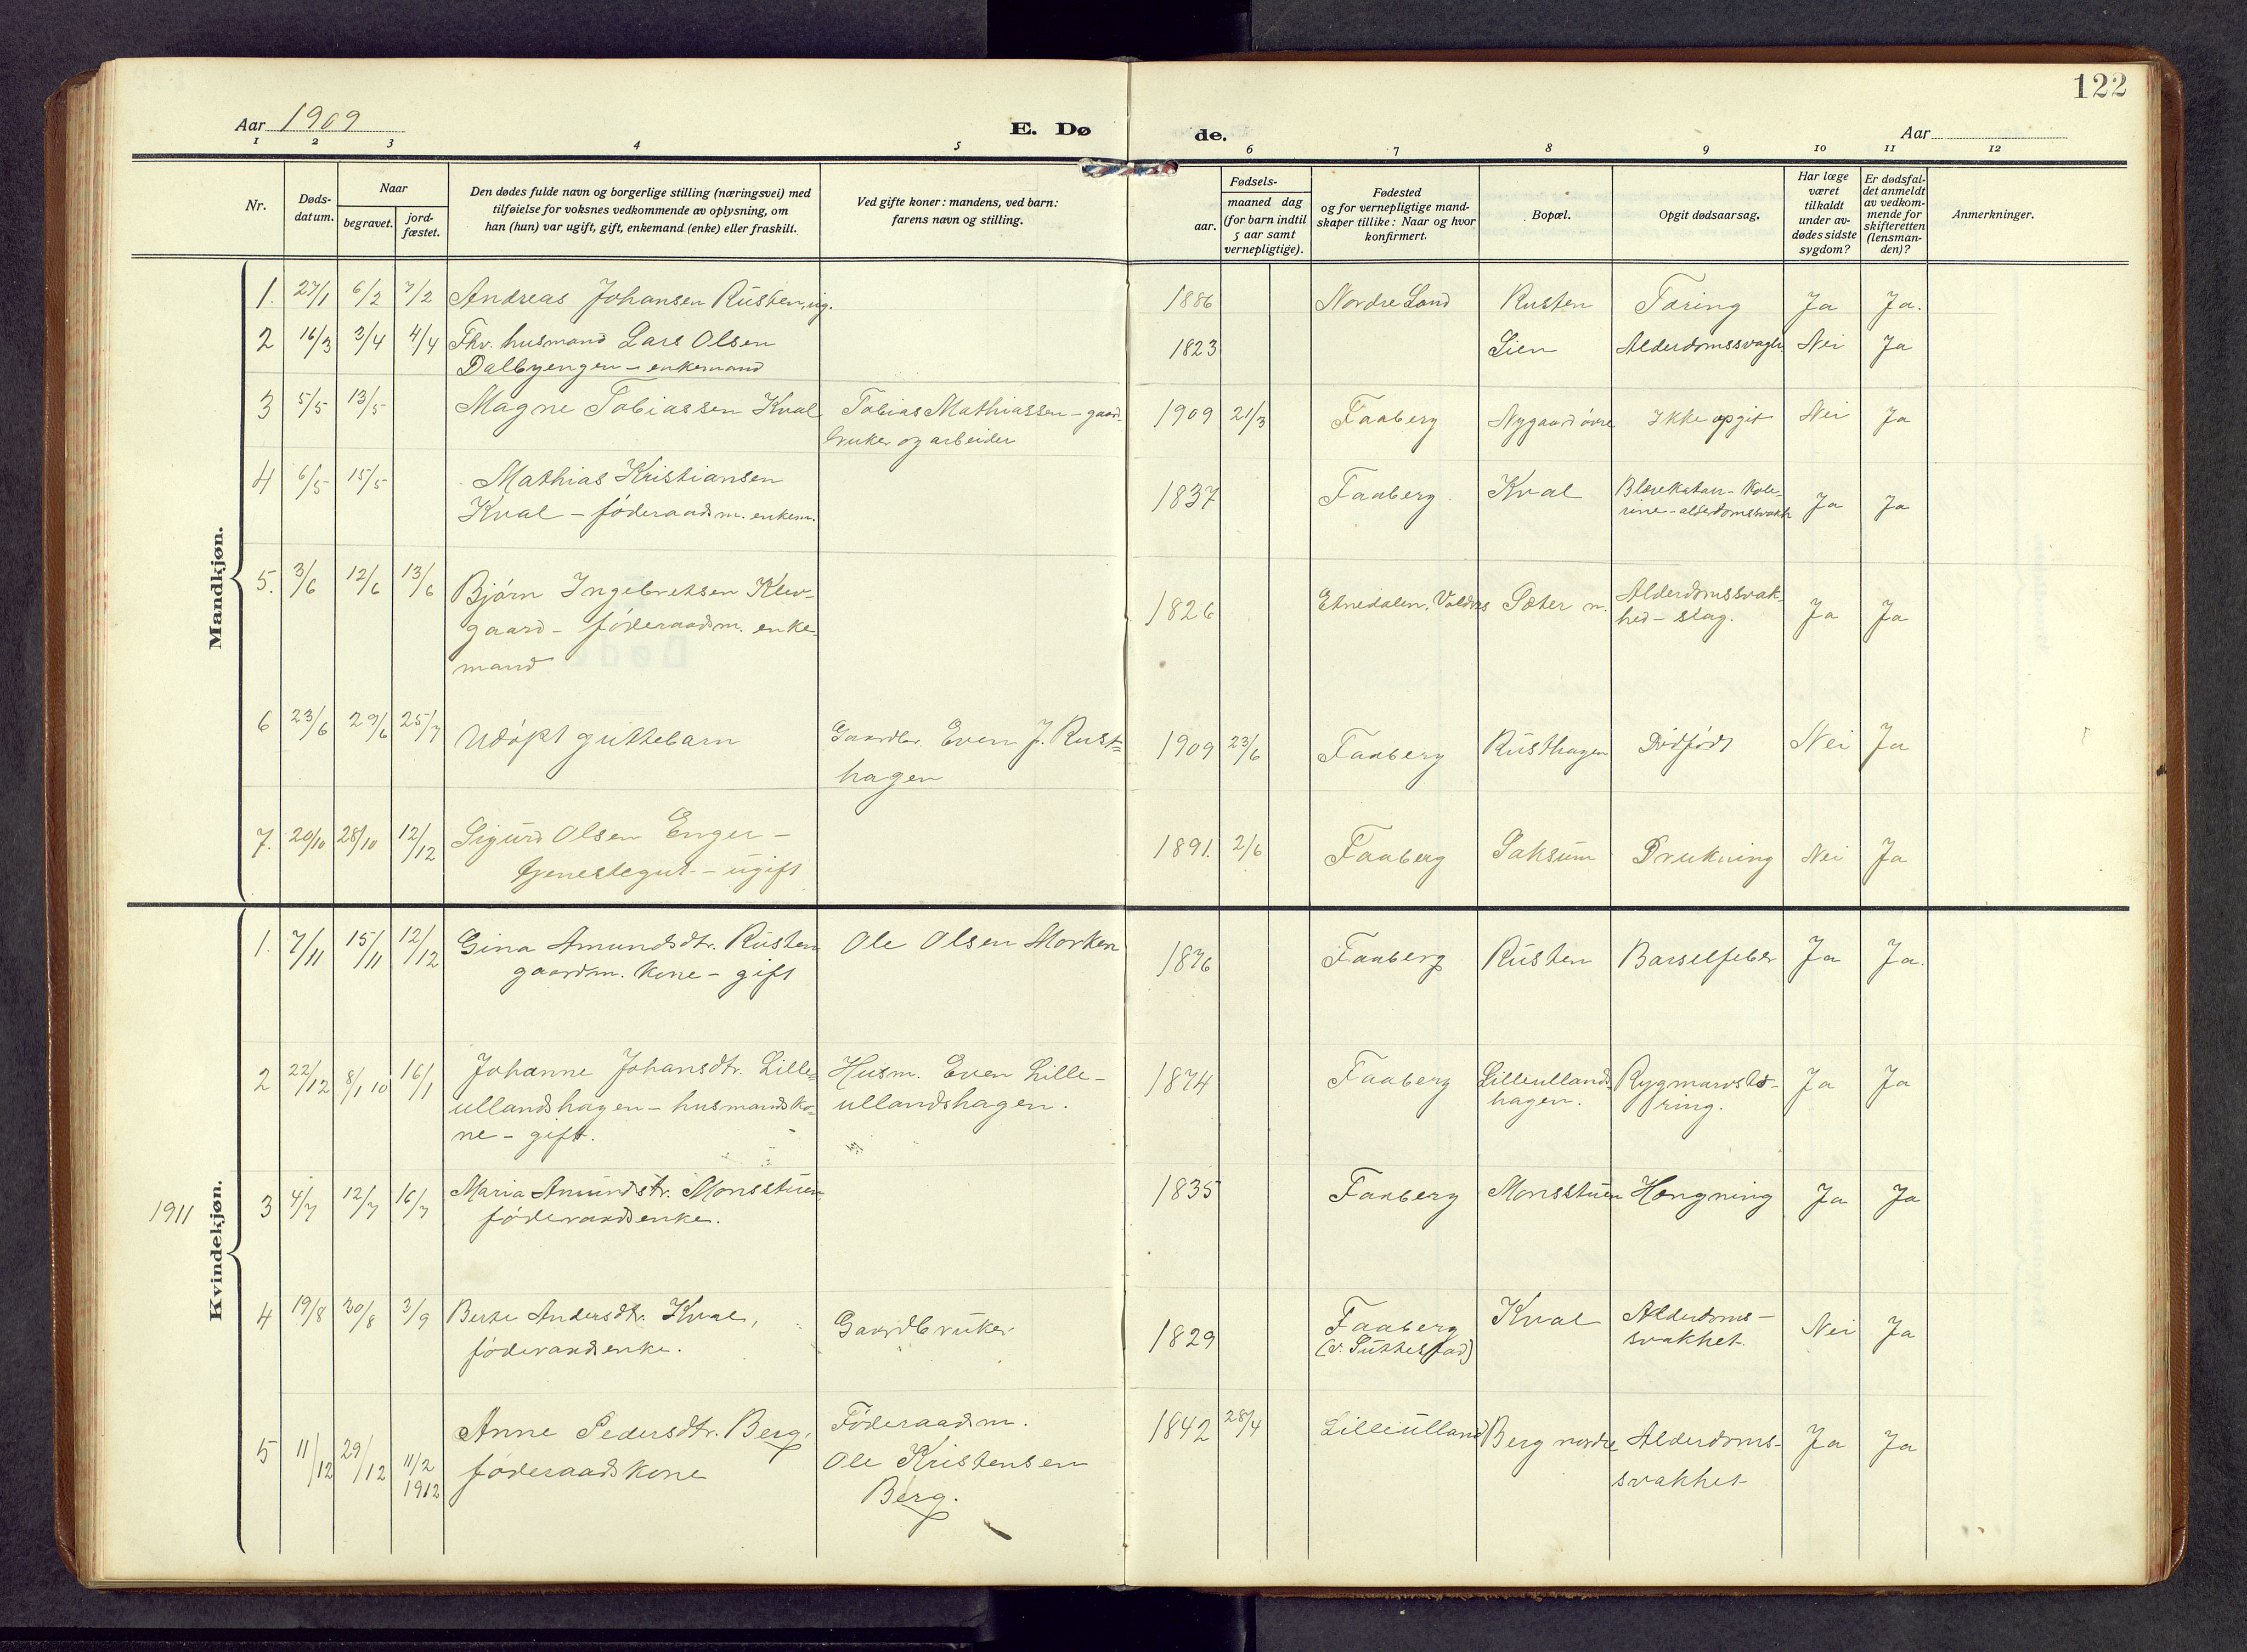 122
Aar 1909
E. Dø
de.
Aar
1 2 3 4 5 6 7 8 9 10 11 12
Nr.
Døds-
datum.
Naar
begravet.
jord-
fæstet.
Den dødes fulde navn og borgerlige stilling (næringsvei) med
tilføielse for voksnes vedkommende av oplysning, om
han (hun) var ugift, gift, enkemand (enke) eller fraskilt.
Ved gifte koner: mandens, ved barn:
farens navn og stilling.
Fødsels-
aar.
maaned dag
(for barn indtil
5 aar samt
vernepligtige).
Fødested
og for vernepligtige mand-
skaper tillike: Naar og hvor
konfirmert.
Bopæl.
Opgit dødsaarsag.
Har læge
været
tilkaldt
under av-
dødes sidste
sygdom?
Er dødsfal-
det anmeldt
av vedkom-
mende for
skifteretten
(lensman-
den)?
Anmerkninger.
Mandkjøn.
1. 27/1 6/2 7/2 Andreas Johansen Rusten, ug. 1886 Nordre Land Rusten Tæring Ja Ja.
2 16/3 3/4 4/4 Fhv. husmand Lars Olsen 1823 Lien Alderdomssvagh. Nei Ja
Dalbyengen - enkemand
3 5/5 13/5 Magne Tobiassen Kval Tobias Mathiassen - gaard- 1909 21/3 Faaberg Nygaard øvre Ikke opgit Nei Ja
bruker og arbeider
4 6/5 15/5 Mathias Kristiansen 1837 Faaberg Kval Blærekatarr - Kole- Ja Ja
Kval - føderaadsm. enkem. rine - alderdomssvakh
5. 3/6 12/6 13/6 Bjørn Ingebretsen Klev- 1826 Etnedalen, Valdres Sæter n. Alderdomssvak- Ja Ja
gaard - føderaadsm. enke- hed - slag.
mand
6 23/6 29/6 25/7 Udøpt guttebarn Gaardbr. Even J. Rust- 1909 23/6 Faaberg Rusthagen Dødfødt Nei Ja
hagen
7. 20/10 28/10 12/12 Sigurd Olsen Enger - 1891. 2/6 Faaberg Saksum Drukning Nei Ja
tjenestegut - ugift
Kvindekjøn.
1. 7/11 15/11 12/12 Gina Amundsdtr. Rusten Ole Olsen Morken 1876 Faaberg Rusten Barselfeber Ja Ja.
gaardm. kone - gift
2 22/12 8/1 10 16/1 Johanne Johansdtr. Lille- Husm. Even Lille- 1874 Faaberg Lilleullands- Rygmarvstæ- Ja Ja
ullandshagen - husmandsko- ullandshagen. hagen. ring.
ne - gift.
1911 3 4/7 12/7 16/7 Maria Amundstr. Monsstuen 1835 Faaberg Monsstuen Hængning Ja Ja
føderaadsenke.
4 19/8 30/8 3/9 Berte Andersdtr. Kval, Gaardbruker 1829 Faaberg Kval Alderdoms- Nei Ja
føderaadsenke. (v. Suttestad) svakhet.
5 11/12 29/12 11/2 1912 Anne Pedersdtr. Berg. Føderaadsm. 1842 28/4 Lilleulland Berg nordre Alderdoms- Ja Ja
føderaadskone Ole Kristensen svakhet
Berg.